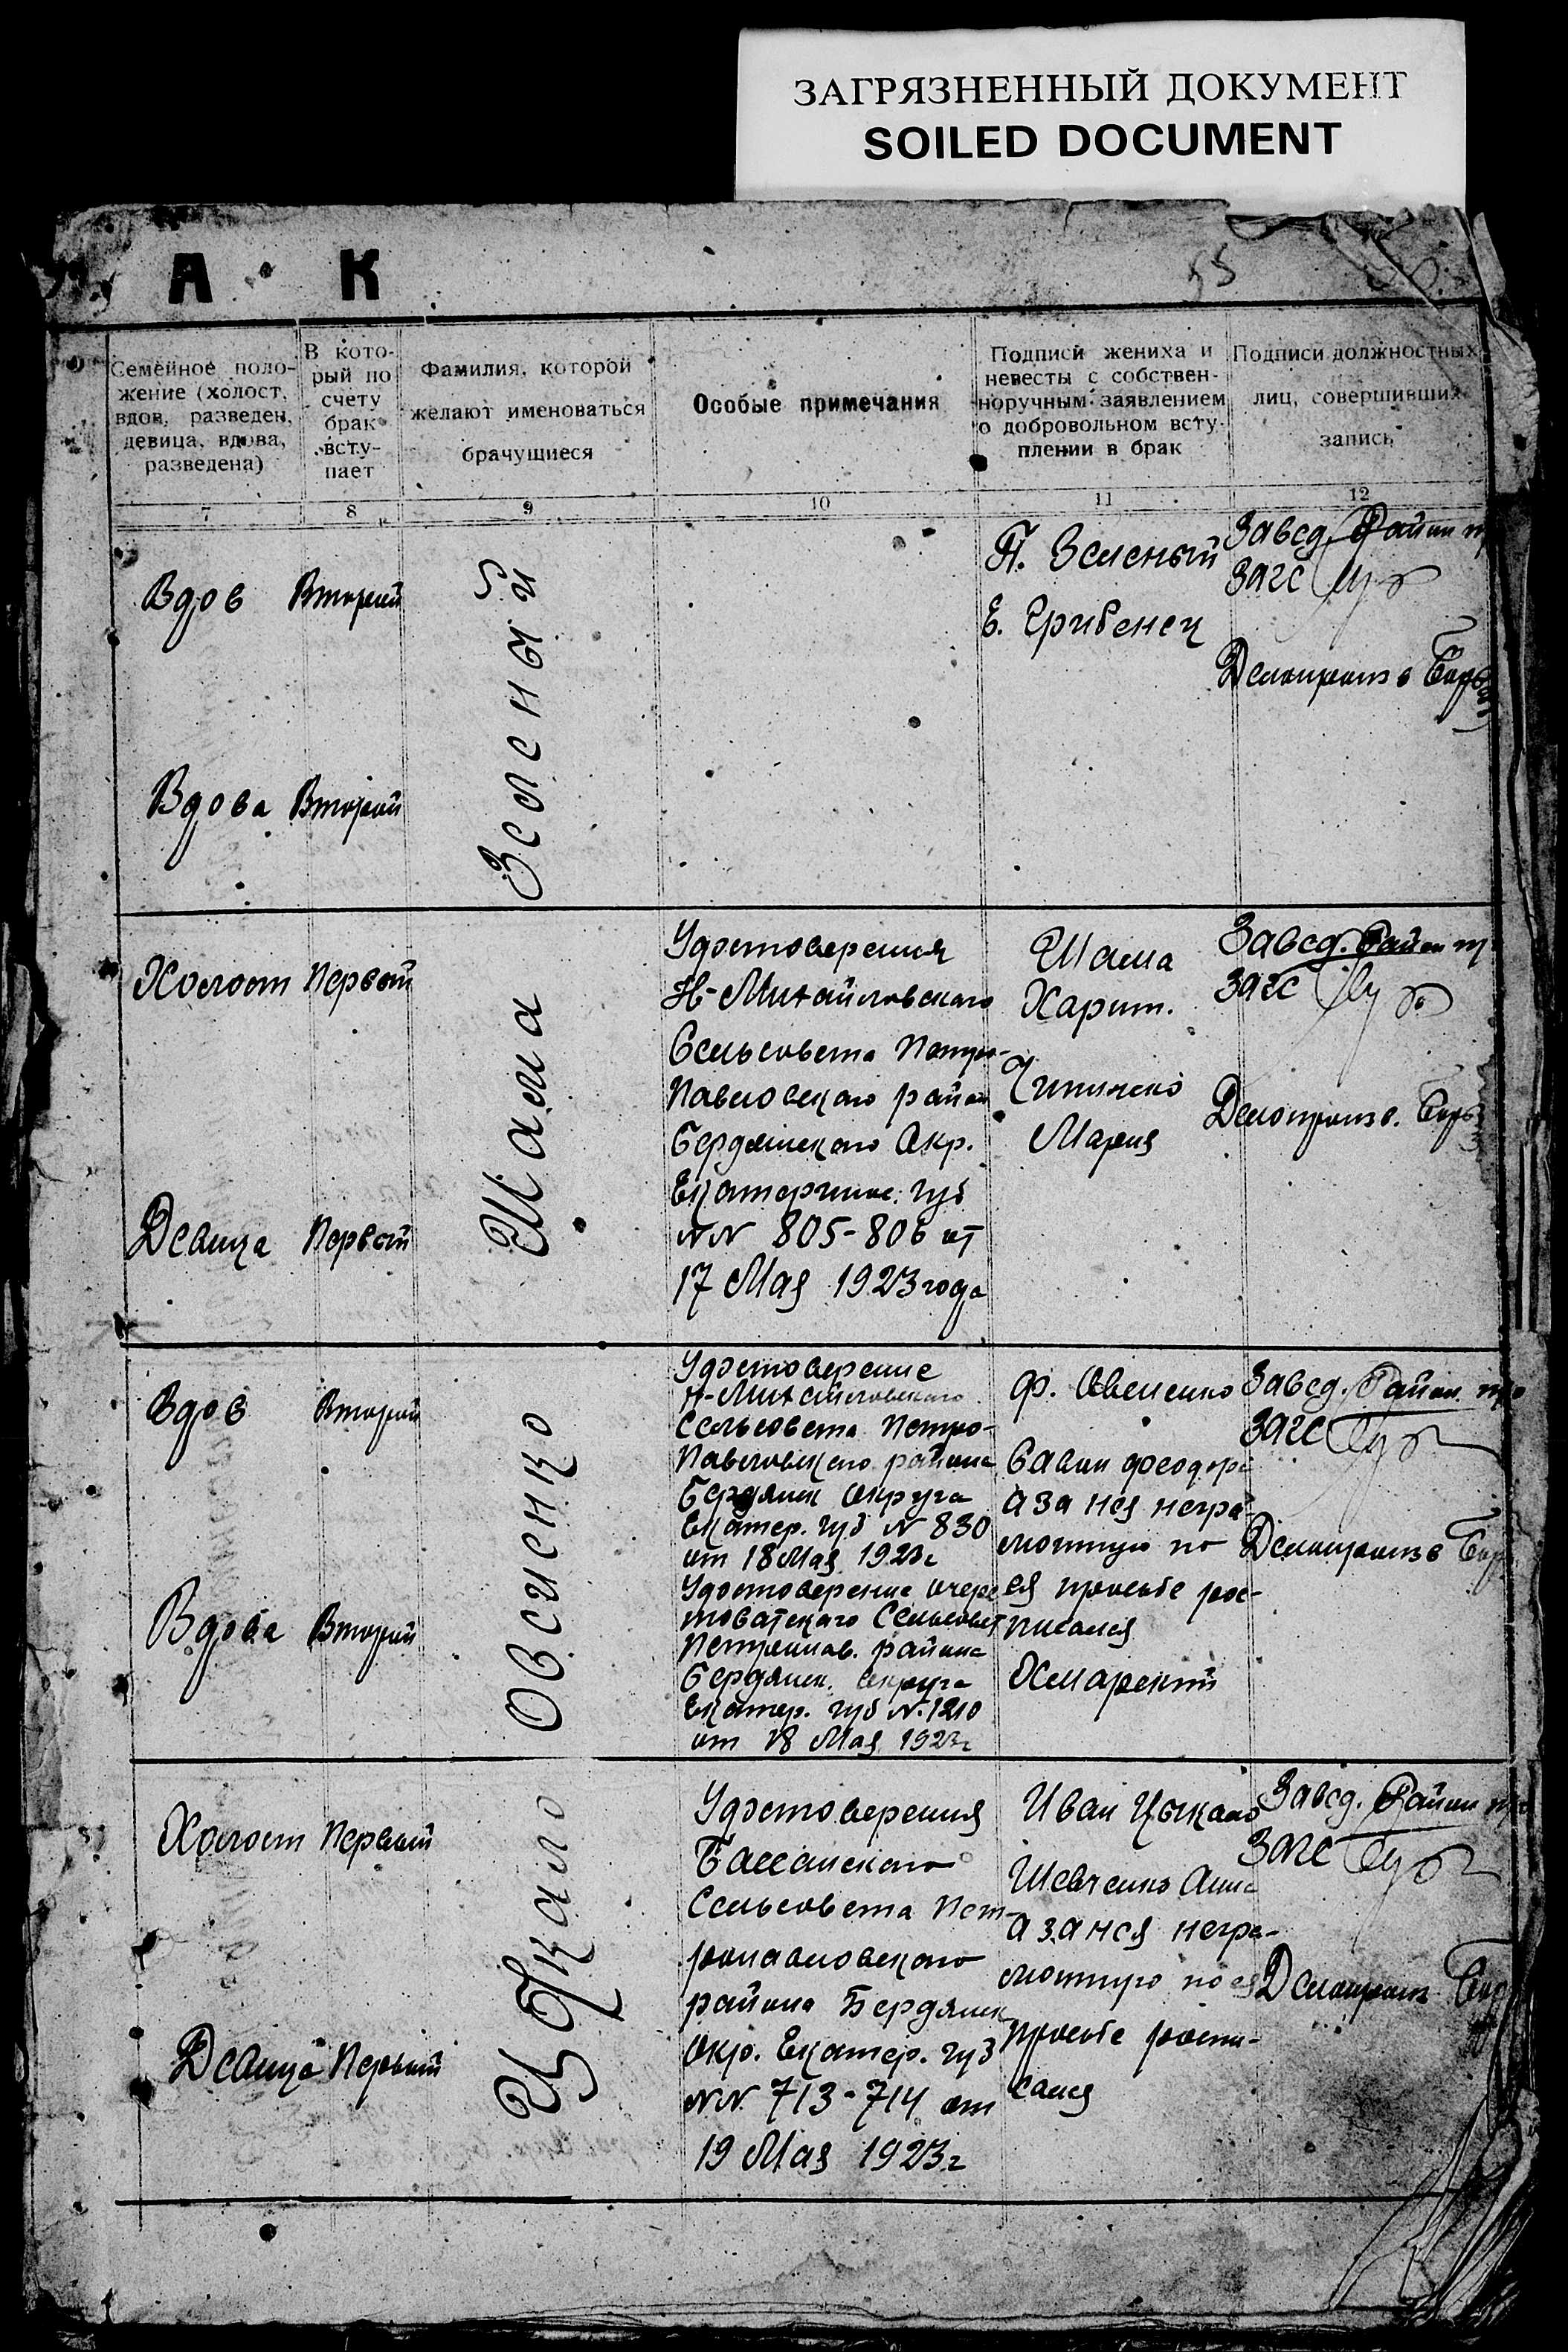 ЗАГРЯЗНЕННЫЙ ДОКУМЕНТ
SOILED DOCUMENT
А К
55
Семейное поло-
жение (холост,
вдов, разведен,
девица, вдова,
разведена)
В кото-
рый по
счету
брак
всту-
пает
Фамилия, которой
желают именоваться
брачущиеся
Особые примечания
Подписи жениха и
невесты с собствен-
норучным заявлением
о добровольном всту-
плении в брак
Подписи должностных
лиц, совершивших
запись
7
8
9
10
11
12
Вдов
Второй
Вдова
Второй
Зеленый
П. Зеленый
Е. Грибенец
Завед. Район
Загс
Делопроизв
Холост
Первый
Девица
Первый
Шама
Удостоверения
Н-Михайловского
Сельсовета Петро-
Павловского район
Бердянского Окр.
Екатеринос. губ
NN 805-806 от
17 Мая 1923 года
Шама
Харит.
Мария
Завед. Район
Загс
Делопроизв.
Вдов
Второй
Вдова
Второй
Овсиенко
Удостоверение
Н-Михайловского
Сельсовета Петро-
Павловского района
Бердянск Округа
Екатер. губ N 830
от 18 Мая 1923г
Удостоверение
Сельсовет
района
Бердянск. Округа
Екатер. губ N. 1210
от 18 Мая 1923г
Ф. Овсиенко
а за нея негра-
мотную по
ея просьбе рос-
писался
Завед. Район.
Загс
Делопроизв
Холост
Первый
Девица
Первый
Цыкало
Удостоверения
Сельсовета Пет-
ропавловского
района Бердянск
Окр. Екатер. губ
NN. 713-714 от
19 Мая 1923г
Иван Цыкало
Шевченко Анна
а за нея негра-
мотную по ея
просьбе роспи-
сался
Завед. Район
Загс
Делопроизв